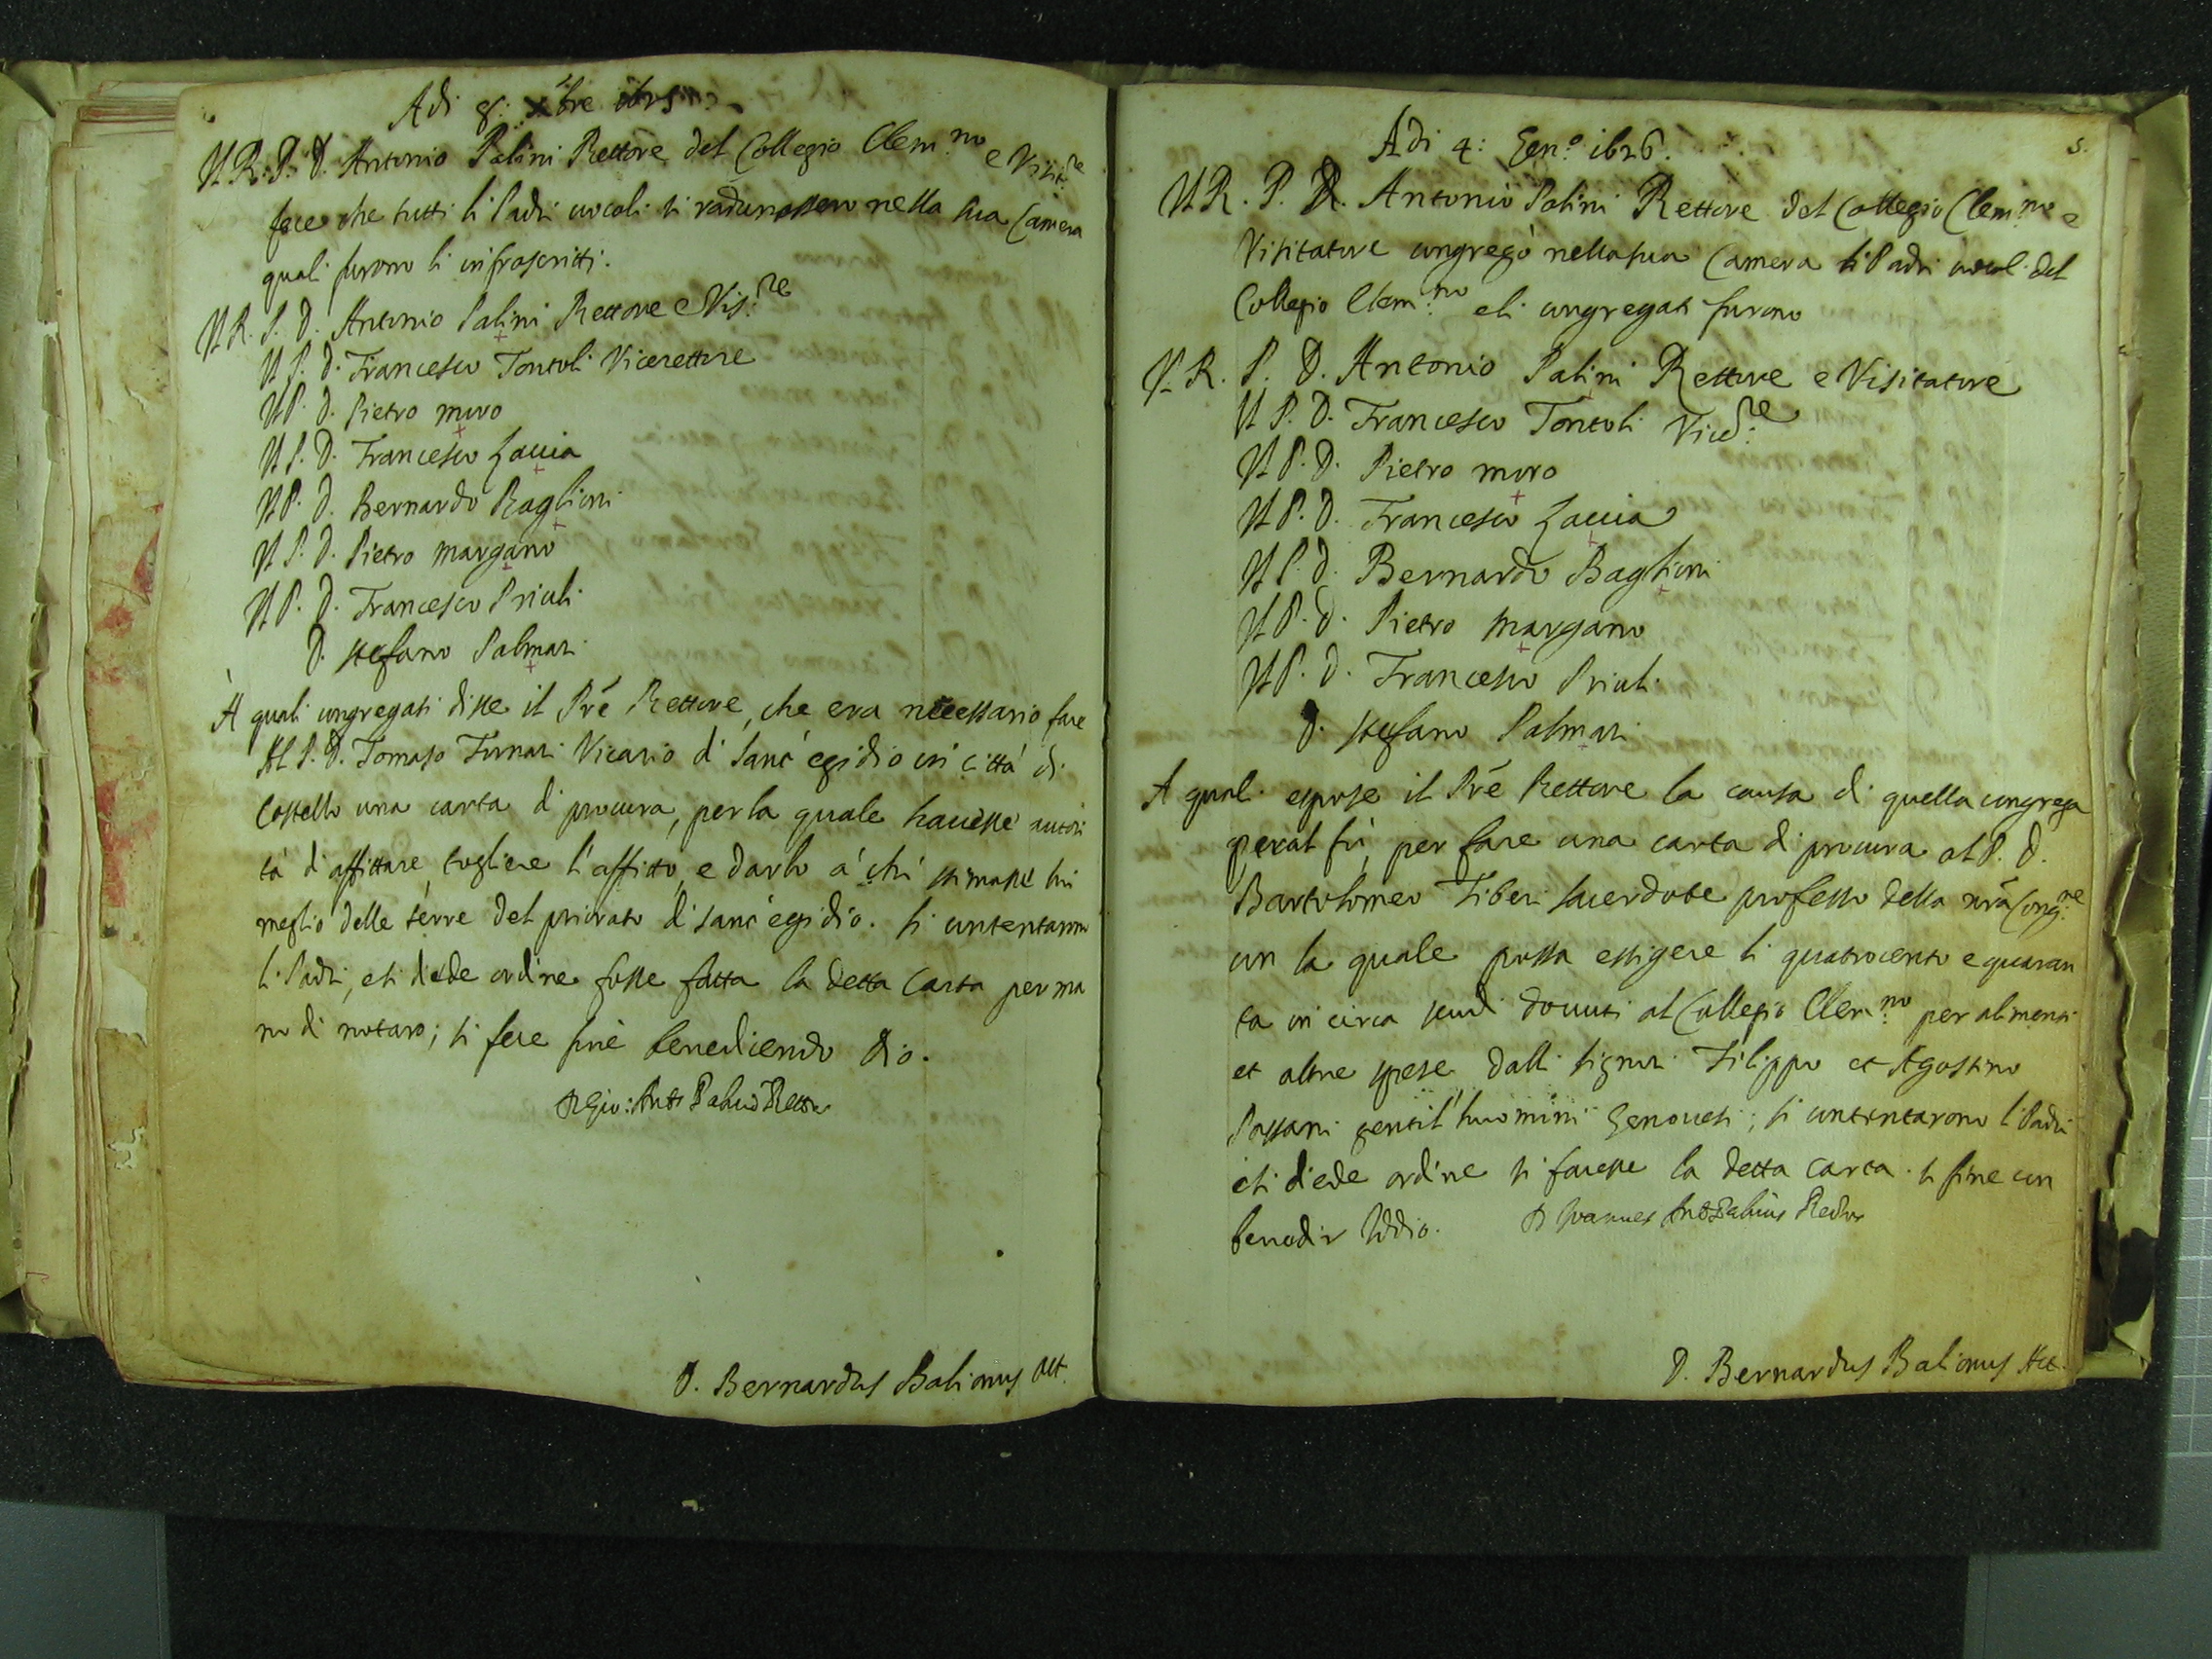 Adi 8: xbre 1625
Il R. P. D. Antonio Palini Rettore del Collegio Clem.no e Visit.re
fece che tutti li Padri vocali si radunassero nella sua Camera
quali furono li infrascritti.
Il R. P. D. Antonio Palini Rettore e Vis.re
Il P. D. Francesco Tontoli Vicerettore
Il P. D. Pietro moro
Il P. D. Francesco Zaccia
Il P. D. Bernardo Baglioni
Il P. D. Pietro margano
Il P. D. Francesco Priuli
D. stefano Palmari
A quali congregati disse il Pré Rettore, che era necessario fare
Al P. D. Tomaso Fornari Vicario di Sanc' egidio in città di
Castello una carta di procura, per la quale havesse autori
tà di affittare, togliere l'affitto, e darlo á chi stimasse lui
meglio delle terre del priorato di sanc' egidio. si contentarono
li Padri, e si diede ordine fosse fatta la detta Carta per ma
no di notaro; si fece fine benedicendo Dio.
D. Gio: Antº Palini Rettor
D. Bernardus Balionus Act.
5.
Adi 4: Gen.o 1626.
Il R. P. D. Antonio Palini Rettore del Collegio Clem.no e
Visitatore congregò nella sua Camera li Padri vocal. del
Collegio Clem.no e li congregati furono
Il R. P. D. Antonio Palini Rettore e Visitatore
Il P. D. Francesco Tontoli Vice.re
Il P. D. Pietro moro
Il P. D. Francesco Zaccia
Il P. D. Bernardo Baglioni
Il P. D. Pietro margano
Il P. D. Francesco Priuli
D. stefano Palmari
A quali espose il Pré Rettore la causa di quella congrega
per fare una carta di procura al P. D.
Bartolomeo Tiberi sacerdote professo della nrã Cong.ne
con la quale possa essigere li quatrocento e quaran
ta in circa scudi dovuti al Collegio Clem.no per alimenti
et altre spese dalli signori Filippo et Agostino
Passani gentil'huomini Genovesi; si contentarono li Padri
e si diede ordine si facesse la detta Carta. si fine con
benedir Iddio. D Joannes Antº Palinus Rector
D. Bernardus Balionus Act.